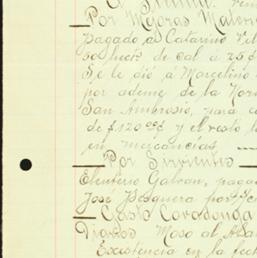 Por Mejoras Mater
pagado a Catarino Vil
50 hect. de cal a 25¢
Se le dió a Marcelino
por ademe de la Nor
San Ambrosio, para c
de $120.00 y el resto l
en mercancías.
Por Sirvientes
Eleuterio Galvan, pagad
José Pesquera por
Casto Covadonga
Diarios Moso al A
Existencia en la fech